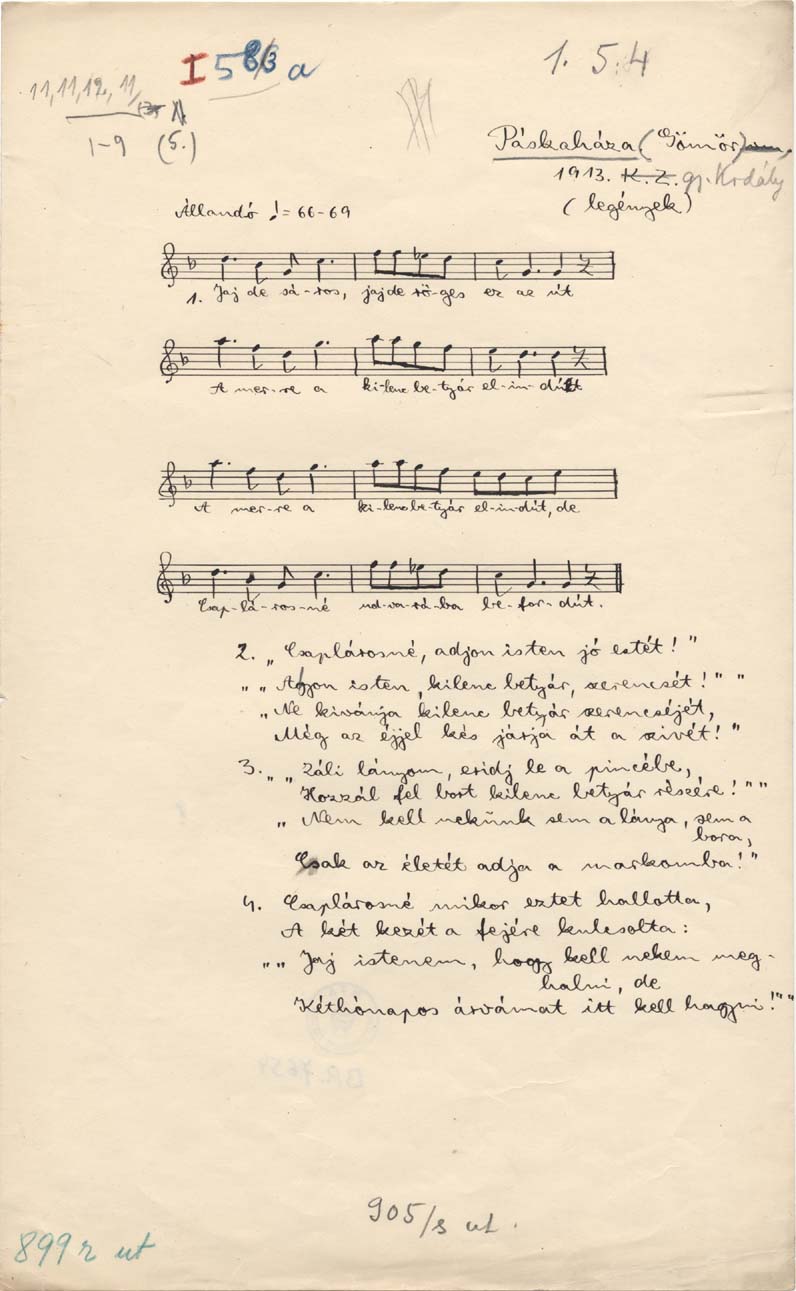 I 58/3 a
1. 5. 4
11, 11, 12, 11
1-9 (5.)
Páskaháza (Gömör)
1913. K. Z. gy. Kodály
(legények)
Állandó ♩ = 66-69
1. Jaj de sá-ros, jaj de rö-ges ez az út
A mer-re a ki-lenc be-tyár el-in-dút
A mer-re a ki-lenc be-tyár el-in-dút, de
Csap-lá-ros-né ud-va-rá-ba be-for-dút.
2. „Csaplárosné, adjon isten jó estét!"
„„Agyon isten, kilenc betyár, szerencsét!""
„Ne kivánja kilenc betyár szerencséjét,
Még az éjjel kés járja át a szivét!"
3. „„Záli lányom, eridj le a pincébe,
Hozzál fel bort kilenc betyár részére!""
„Nem kell nekünk sem a lánya, sem a
bora,
Csak az életét adja a markomba!"
4. Csaplárosné mikor eztet hallotta,
A két kezét a fejére kulcsolta:
„„Jaj istenem, hogy kell nekem meg-
halni, de
Kéthónapos árvámat itt kell hagyni!""
905/s ut.
899 r ut